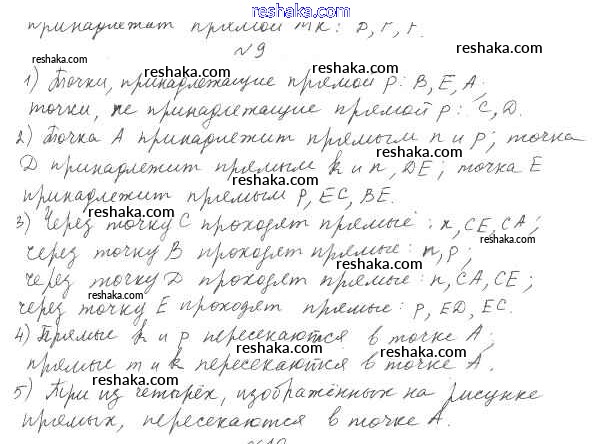 reshaka.com
принадлежат прямой МК:
№9
reshaka.com
1) Точки, принадлежащие прямой p: B, E, A;
reshaka.com reshaka.com
точки, не принадлежащие прямой p: C, D.
reshaka.com
2) Точка A принадлежит прямым n и p; точка
reshaka.com
D принадлежит прямым k и n, DE; точка E
reshaka.com
принадлежит прямым p, EC, BE.
reshaka.com
3) Через точку C проходят прямые: k, CE, CA;
reshaka.com
через точку B проходят прямые: n, p;
reshaka.com
через точку D проходят прямые: n, CA, CE;
reshaka.com
через точку E проходят прямые: p, ED, EC.
reshaka.com
4) Прямые k и p пересекаются в точке A;
reshaka.com
прямые m и k пересекаются в точке A.
reshaka.com
5) Три из четырёх, изображённых на рисунке
reshaka.com
прямых, пересекаются в точке A.